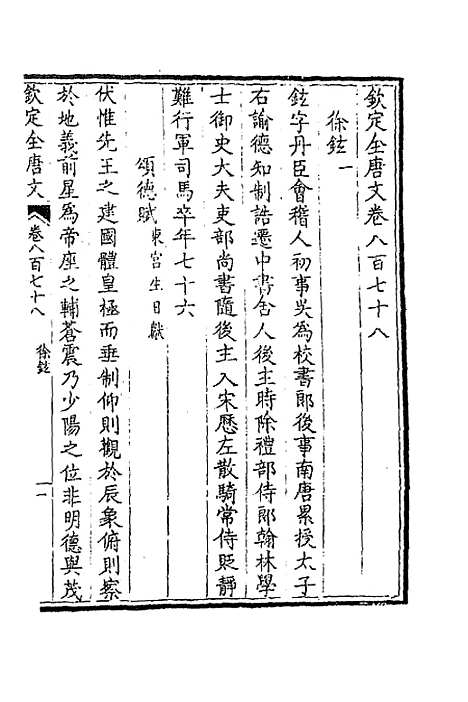 欽定全唐文卷八百七十八
徐鉉一
鉉字丹臣會稽人初事吳為校書郎後事南唐累授太子
右諭德知制誥遷中書舍人後主時除禮部侍郎翰林學
士御史大夫吏部尚書隨後主入宋歷左散騎常侍貶靜
難行軍司馬卒年七十六
頌德賦東宮生日獻
伏惟先王之建國體皇極而垂制仰則觀於辰象俯則察
於地義前星為帝座之輔蒼震乃少陽之位非明德與茂
欽定全唐文 卷八百七十八 徐鉉 一